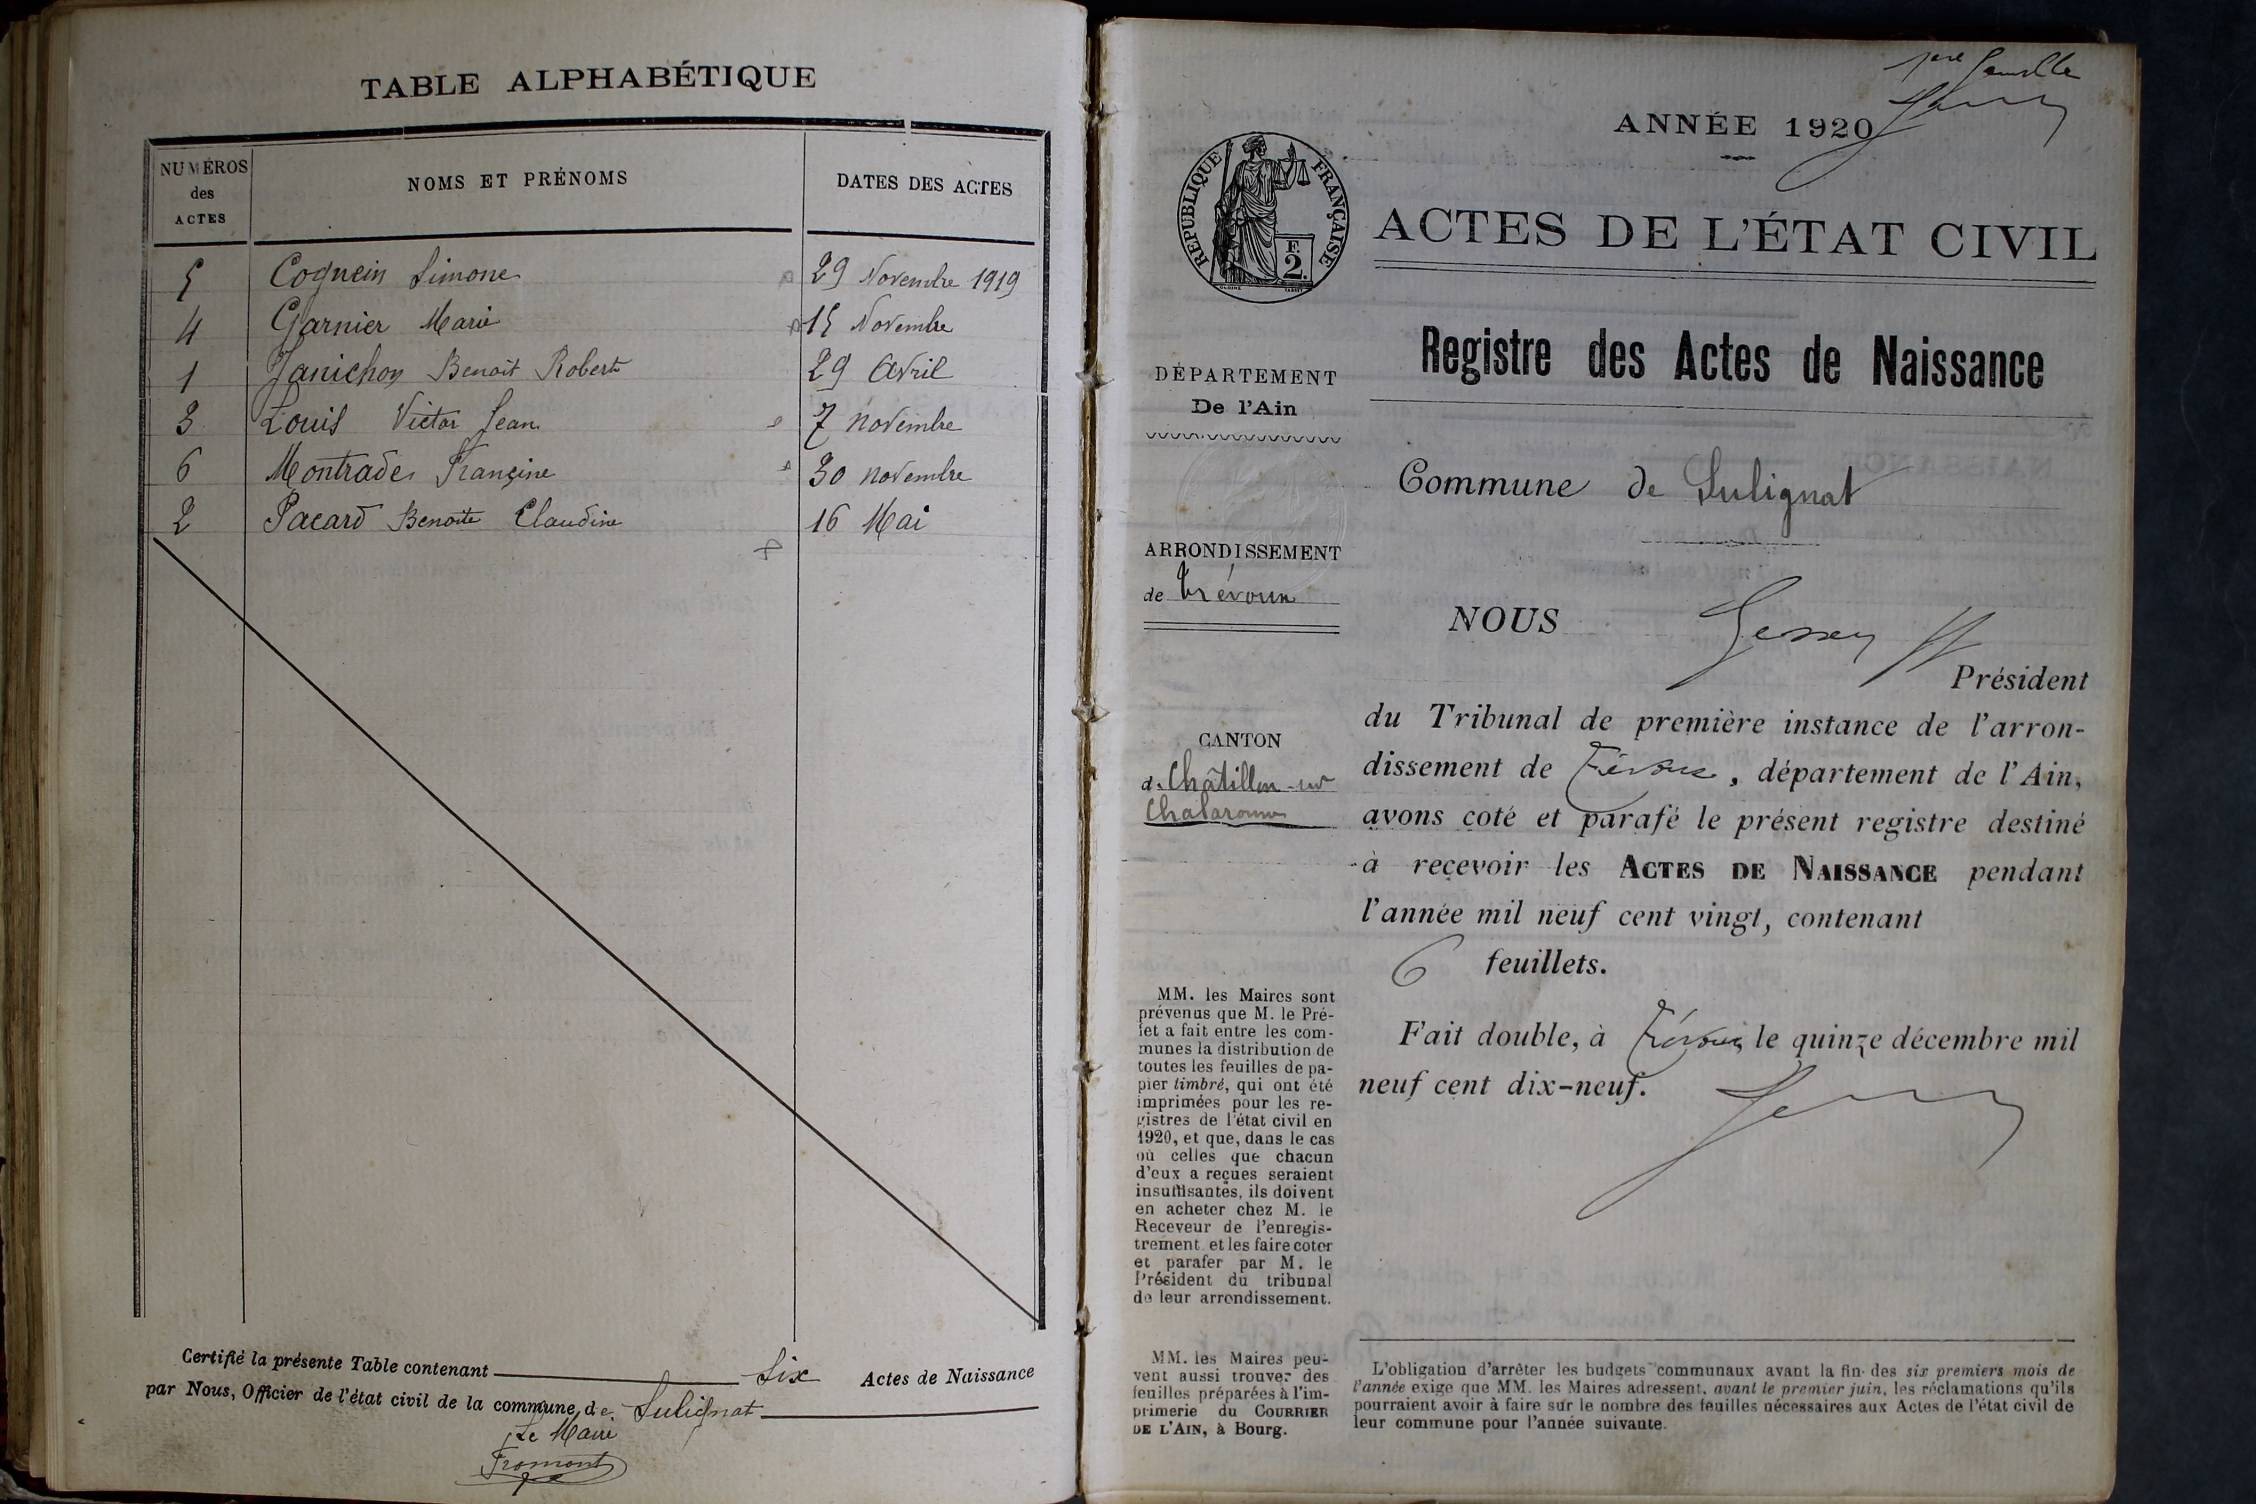 TABLE ALPHABÉTIQUE
NUMÉROS
des
ACTES
NOMS ET PRÉNOMS
DATES DES ACTES
5 Coquein Simone 29 Novembre 1919
4 Garnier Marie 15 Novembre
1 Janichon Benoit Robert 29 Avril
3 Louis Victor Jean 7 novembre
6 Montrade Françine 30 novembre
2 Pacard Benoite Claudine 16 Mai
Certifié la présente Table contenant Six Actes de Naissance
par Nous, Officier de l'état civil de la commune de Sulignat
Le Maire
Fromont
1ère feuille
ANNÉE 1920
RÉPUBLIQUE FRANÇAISE
F.
2.
ACTES DE L'ÉTAT CIVIL
Registre des Actes de Naissance
DÉPARTEMENT
De l'Ain
Commune de Sulignat
ARRONDISSEMENT
de Trévoux
NOUS
Président
du Tribunal de première instance de l'arron-
dissement de Trévoux, département de l'Ain,
avons coté et parafé le présent registre destiné
à recevoir les ACTES DE NAISSANCE pendant
l'année mil neuf cent vingt, contenant
6 feuillets.
Fait double, à Trévoux, le quinze décembre mil
neuf cent dix-neuf.
CANTON
de Châtillon-sur
Chalaronne
MM. les Maires sont
prévenus que M. le Pré-
fet a fait entre les com-
munes la distribution de
toutes les feuilles de pa-
pier timbré, qui ont été
imprimées pour les re-
gistres de l'état civil en
1920, et que, dans le cas
où celles que chacun
d'eux a reçues seraient
insuffisantes, ils doivent
en acheter chez M. le
Receveur de l'enregis-
trement et les faire coter
et parafer par M. le
Président du tribunal
de leur arrondissement.
MM. les Maires peu-
vent aussi trouver des
feuilles préparées à l'im-
primerie du COURRIER
DE L'AIN, à Bourg.
L'obligation d'arrêter les budgets communaux avant la fin des six premiers mois de
l'année exige que MM. les Maires adressent, avant le premier juin, les réclamations qu'ils
pourraient avoir à faire sur le nombre des feuilles nécessaires aux Actes de l'état civil de
leur commune pour l'année suivante.